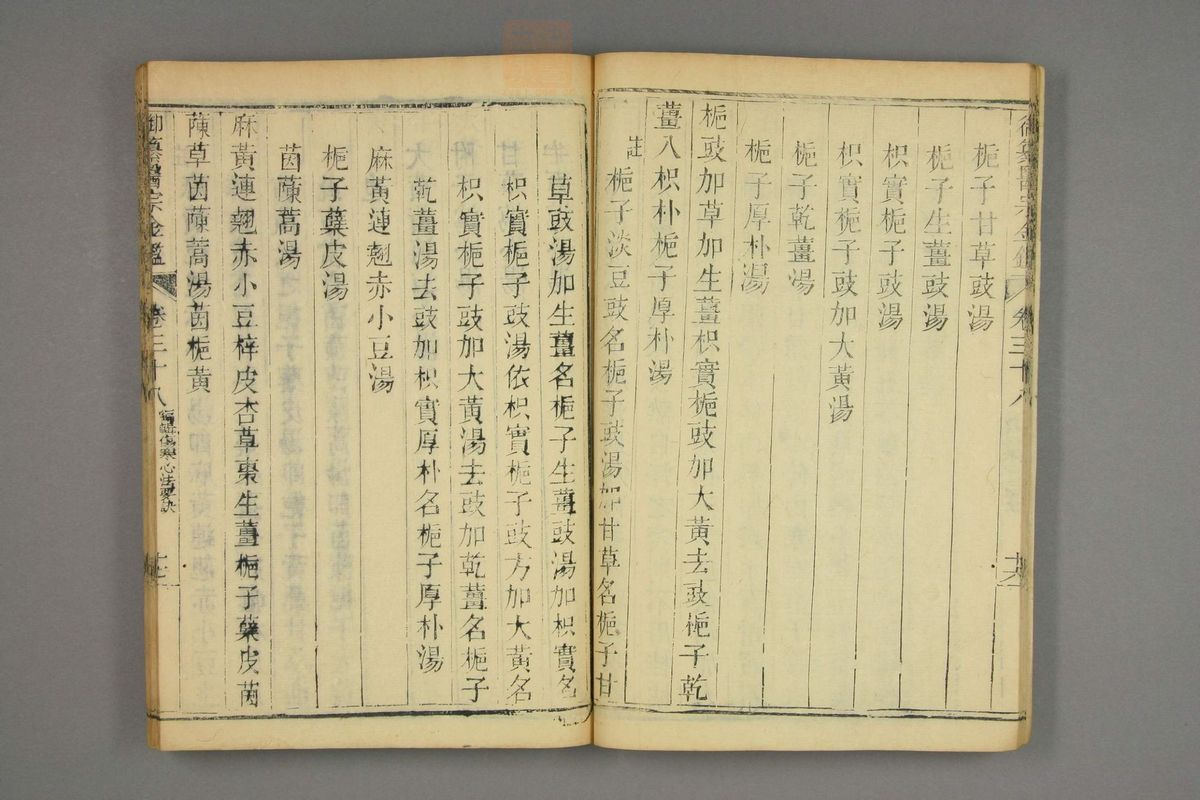 御纂醫宗金鑑 卷三十八 十六
梔子甘草豉湯
梔子生薑豉湯
枳實梔子豉湯
枳實梔子豉加大黃湯
梔子乾薑湯
梔子厚朴湯
梔豉加草加生薑枳實梔豉加大黃去豉梔子乾
薑八枳朴梔子厚朴湯
註 梔子淡豆豉名梔子豉湯加甘草名梔子甘
草豉湯加生薑名梔子生薑豉湯加枳實名
枳實梔子豉湯依枳實梔子豉方加大黃名
枳實梔子豉加大黃湯去豉加乾薑名梔子
乾薑湯去豉加枳實厚朴名梔子厚朴湯
麻黃連翹赤小豆湯
梔子蘗皮湯
茵蔯蒿湯
麻黃連翹赤小豆梓皮杏草棗生薑梔子蘗皮茵
蔯草茵蔯蒿湯茵梔黃
御纂醫宗金鑑 卷三十八 編輯傷寒心法要訣 十七